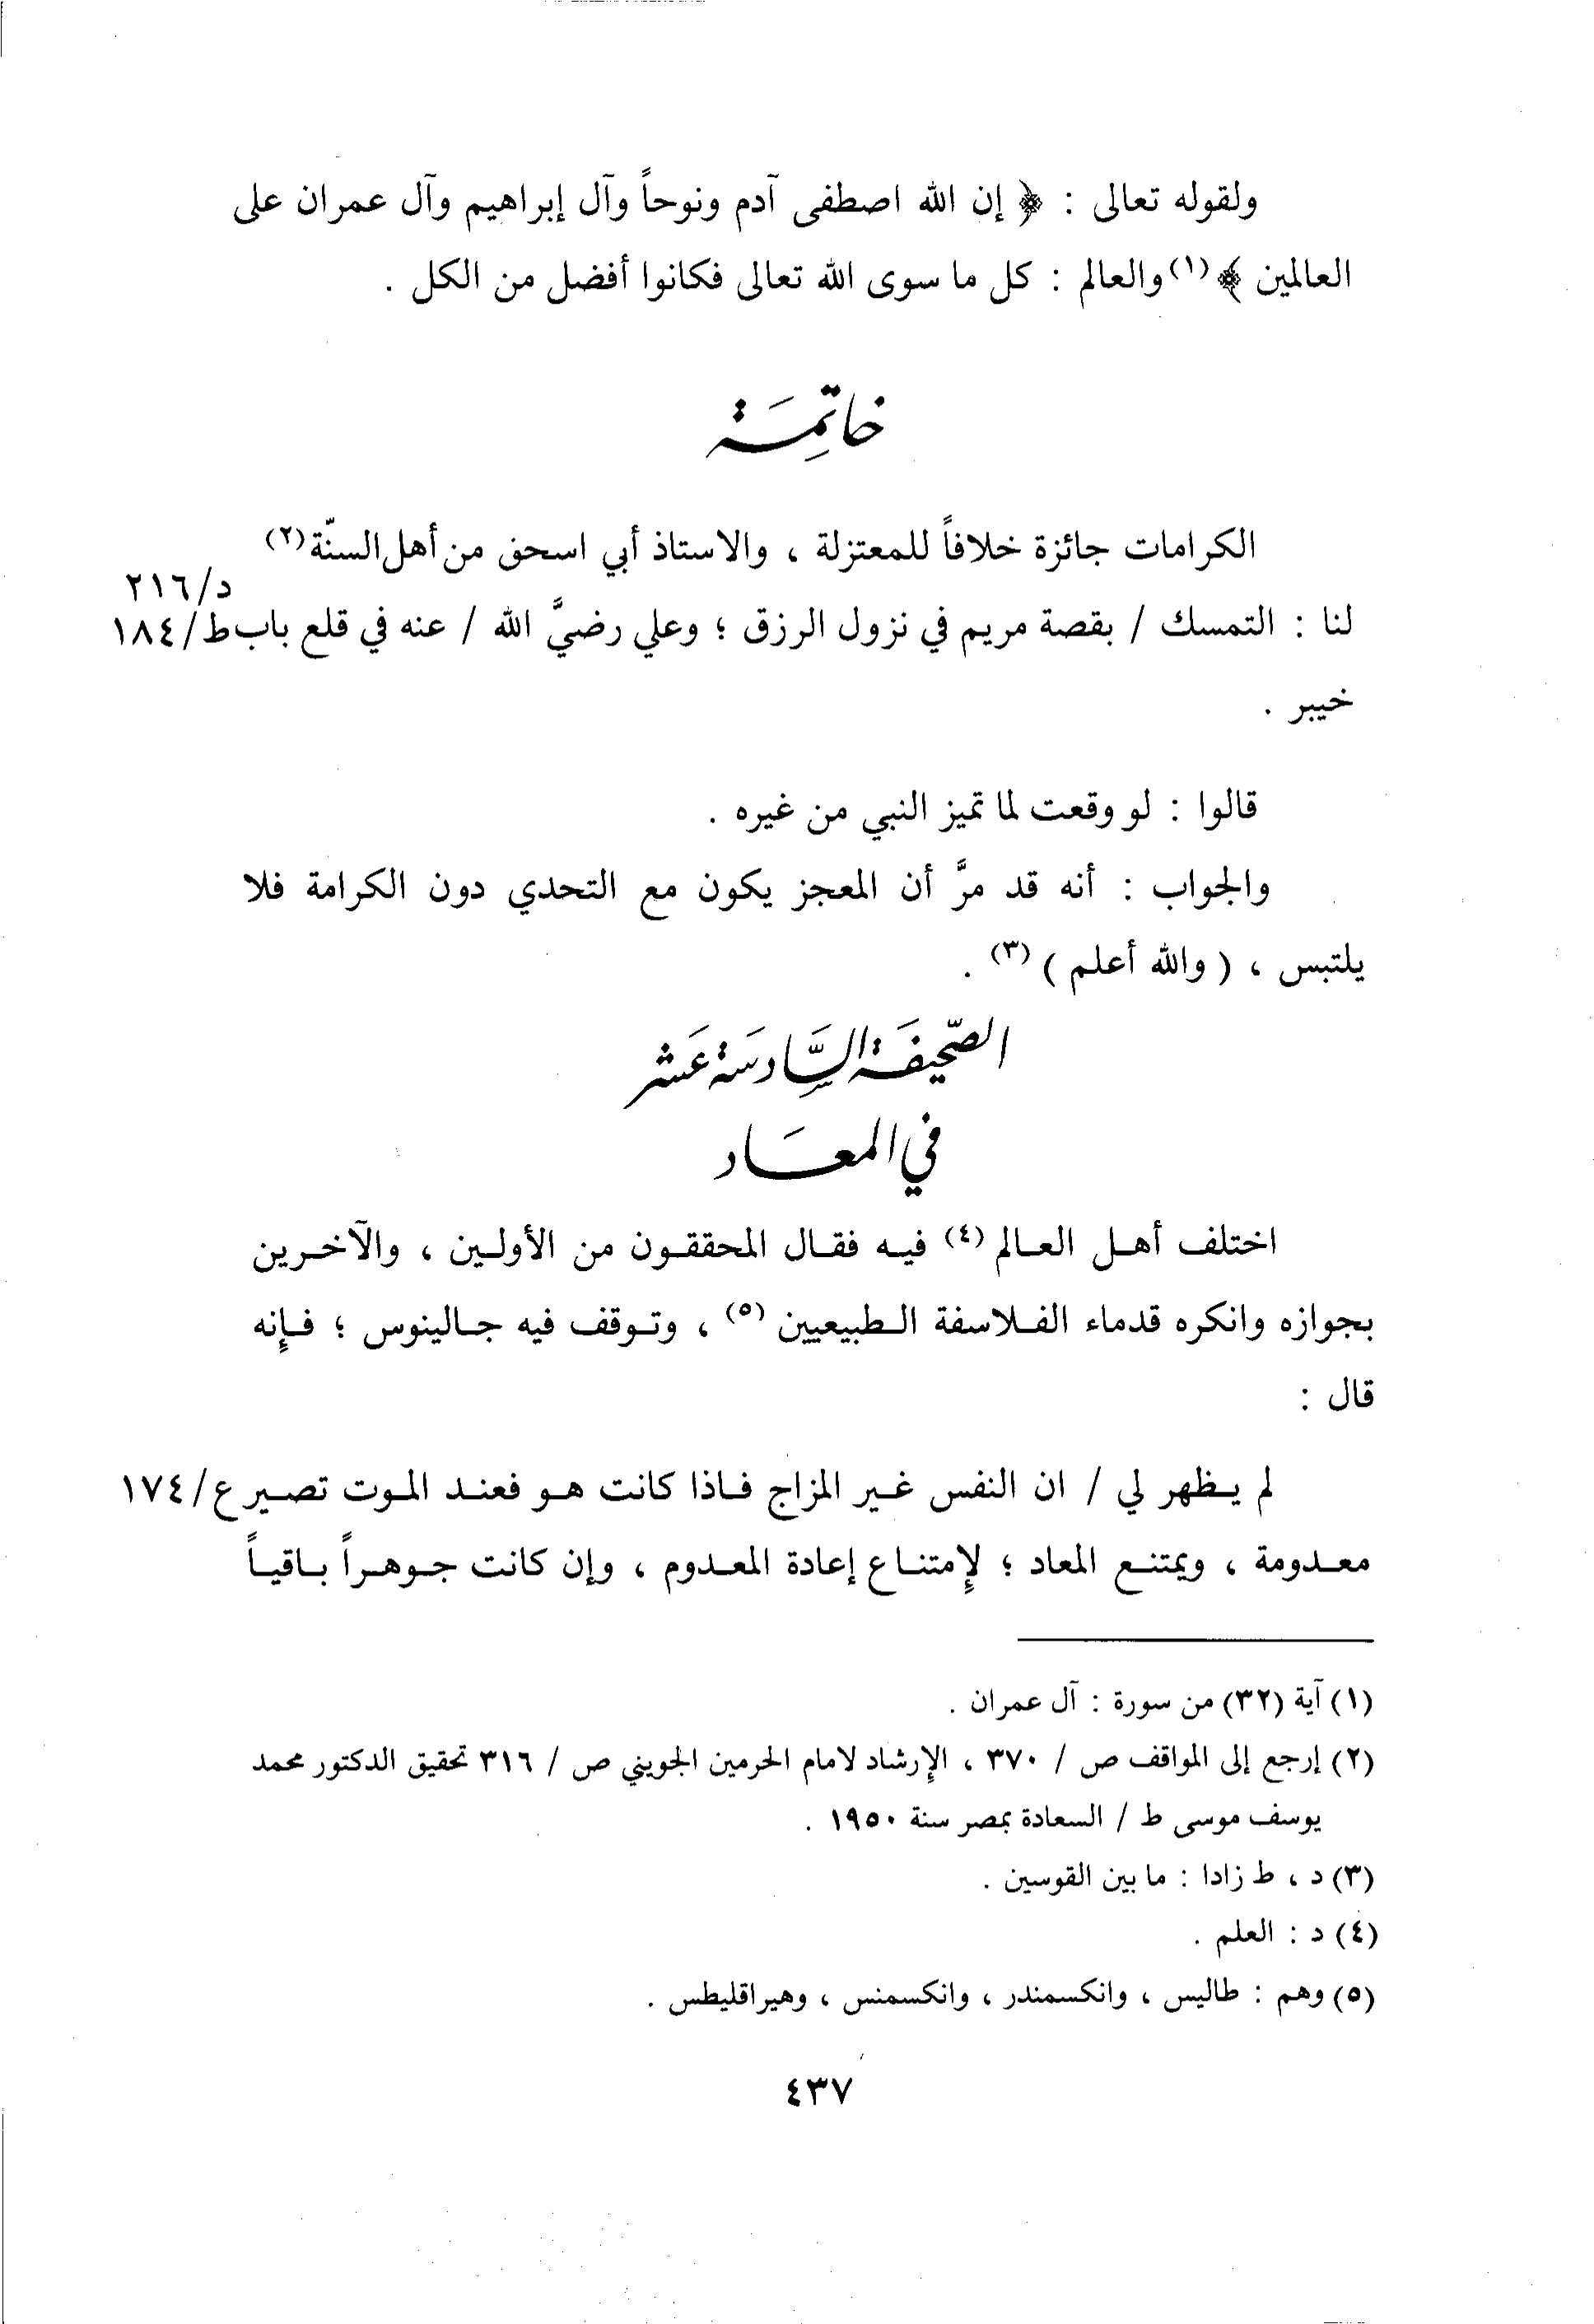 ولقوله تعالى : ﴿ إن الله اصطفى آدم ونوحاً وآل إبراهيم وآل عمران على
العالمين ﴾(١) والعالم : كل ما سوى الله تعالى فكانوا أفضل من الكل .
خاتِمَة
الكرامات جائزة خلافاً للمعتزلة ، والاستاذ أبي اسحق من أهل السنّة(٢)
د/٢١٦
لنا : التمسك / بقصة مريم في نزول الرزق ؛ وعلي رضيَّ الله / عنه في قلع باب ط/١٨٤
خيبر .
قالوا : لو وقعت لما تميز النبي من غيره .
والجواب : أنه قد مرَّ أن المعجز يكون مع التحدي دون الكرامة فلا
يلتبس ، ( والله أعلم ) (٣) .
الصّحيفَة السَّادِسَة عَشر
في المعَاد
اختلف أهل العالم (٤) فيه فقال المحققون من الأولين ، والآخرين
بجوازه وانكره قدماء الفلاسفة الطبيعيين (٥) ، وتوقف فيه جالينوس ؛ فإنه
قال :
لم يظهر لي / ان النفس غير المزاج فاذا كانت هو فعند الموت تصير ع/١٧٤
معدومة ، ويمتنع المعاد ؛ لإمتناع إعادة المعدوم ، وإن كانت جوهراً باقياً
(١) آية (٣٢) من سورة : آل عمران .
(٢) إرجع إلى المواقف ص / ٣٧٠ ، الإرشاد لامام الحرمين الجويني ص / ٣١٦ تحقيق الدكتور محمد
يوسف موسى ط / السعادة بمصر سنة ١٩٥٠ .
(٣) د ، ط زادا : ما بين القوسين .
(٤) د : العلم .
(٥) وهم : طاليس ، وانكسمندر ، وانكسمنس ، وهيراقليطس .
٤٣٧